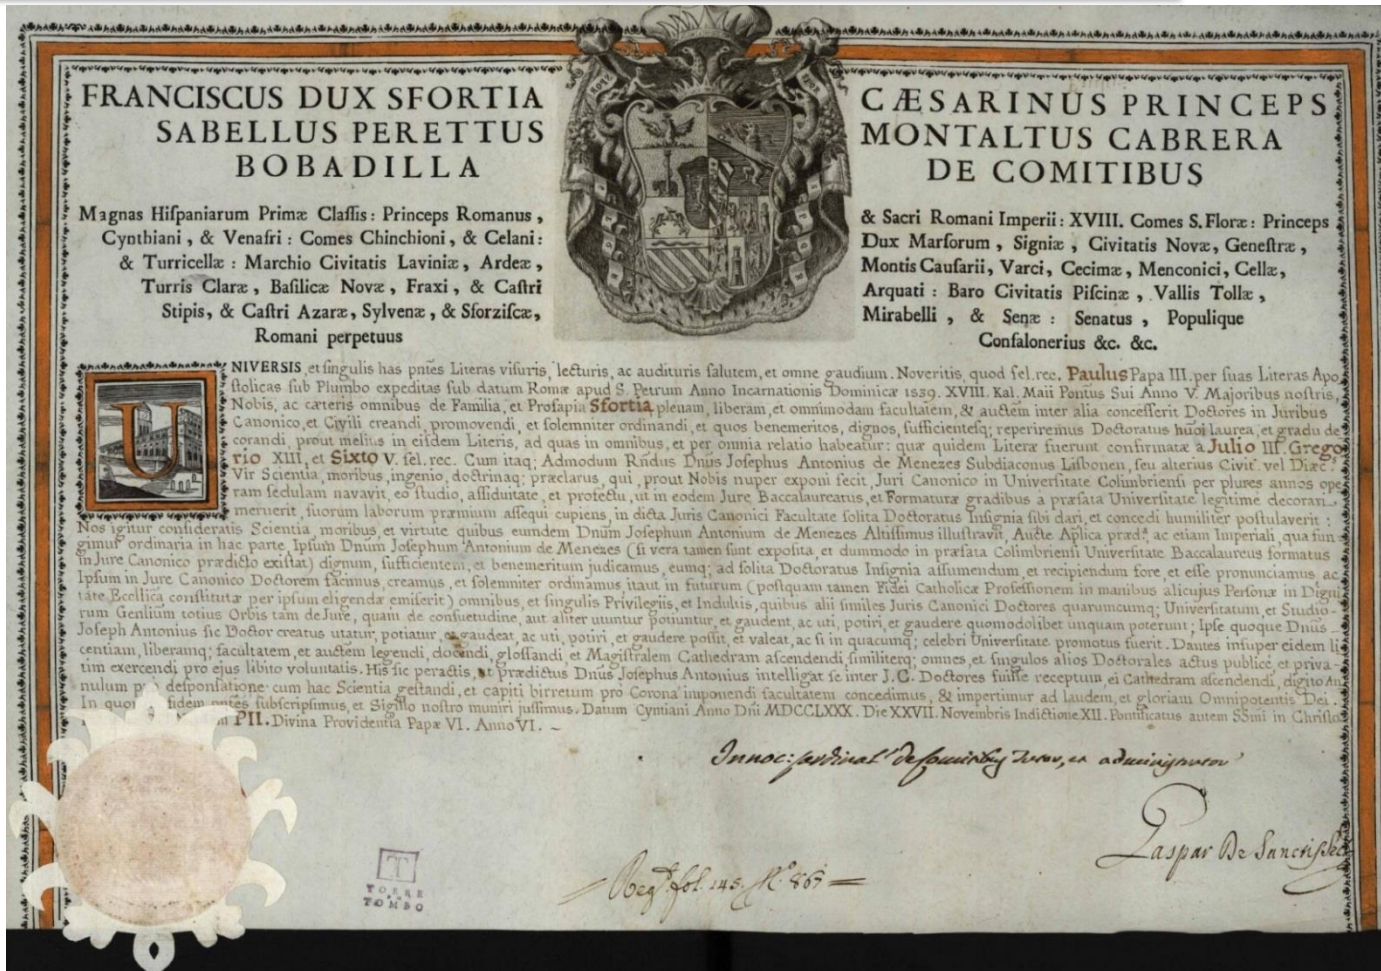 FRANCISCUS DUX SFORTIA
SABELLUS PERETTUS
BOBADILLA
CÆSARINUS PRINCEPS
MONTALTUS CABRERA
DE COMITIBUS
Magnas Hiſpaniarum Primæ Claſſis: Princeps Romanus,
Cynthiani, & Venafri: Comes Chinchioni, & Celani:
& Turricellæ: Marchio Civitatis Laviniæ, Ardeæ,
Turris Claræ, Baſilicæ Novæ, Fraxi, & Caſtri
Stipis, & Caſtri Azaræ, Sylvenæ, & Sforziſcæ,
Romani perpetuus
& Sacri Romani Imperii: XVIII. Comes S. Floræ: Princeps
Dux Marſorum, Signiæ, Civitatis Novæ, Geneſtræ,
Montis Cauſarii, Varci, Cecimæ, Menconici, Cellæ,
Arquati: Baro Civitatis Piſcinæ, Vallis Tollæ,
Mirabelli, & Senæ: Senatus, Populique
Confalonerius &c. &c.
UNIVERSIS, et singulis has pn̄tes Literas visuris, lecturis, ac audituris salutem, et omne gaudium. Noveritis, quod fel. rec. Paulus Papa III. per suas Literas Apo
stolicas sub Plumbo expeditas sub datum Romæ apud S. Petrum Anno Incarnationis Dominicæ 1539. XVIII. Kal. Maii Pontus Sui Anno V. Majoribus nostris,
Nobis, ac cæteris omnibus de Familia, et Prosapia Sfortia plenam, liberam, et omnimodam facultatem, & auctem inter alia concesserit Doctores in Juribus
Canonico, et Civili creandi, promovendi, et solemniter ordinandi, et quos benemeritos, dignos, sufficientesq; reperiremus Doctoratus hūoi laurea, et gradu de
corandi, prout melius in eisdem Literis, ad quas in omnibus, et per omnia relatio habeatur: quæ quidem Literæ fuerunt confirmatæ a Julio III. Grego
rio XIII, et Sixto V. fel. rec. Cum itaq; Admodum Rn̄dus Dnūs Josephus Antonius de Menezes Subdiaconus Lisbonen, seu alterius Civit. vel Diæc.
Vir Scientia, moribus, ingenio, doctrinaq; præclarus, qui, prout Nobis nuper exponi fecit, Juri Canonico in Universitate Colimbriensi per plures annos ope
ram sedulam navavit, eo studio, assiduitate, et profectu, ut in eodem Jure Baccalaureatus, et Formaturæ gradibus a præfata Universitate legitime decorari
meruerit, suorum laborum præmium assequi cupiens, in dicta Juris Canonici Facultate solita Doctoratus Insignia sibi dari, et concedi humiliter postulaverit:
Nos igitur consideratis Scientia, moribus, et virtute quibus eumdem Dnūm Josephum Antonium de Menezes Altissimus illustravit, Aucte Aplica præd., ac etiam Imperiali, qua fun
gimur ordinaria in hac parte, Ipsum Dnūm Josephum Antonium de Menezes (si vera tamen sunt exposita, et dummodo in præfata Colimbriensi Universitate Baccalaureus formatus
in Jure Canonico prædicto existat) dignum, sufficientem, et benemeritum judicamus, eumq; ad solita Doctoratus Insignia assumendum, et recipiendum fore, et esse pronunciamus, ac
Ipsum in Jure Canonico Doctorem facimus, creamus, et solemniter ordinamus, itaut in futurum (postquam tamen Fidei Catholicæ Professionem in manibus alicujus Personæ in Digni
tate Ecclliica constitutæ per ipsum eligendæ emiserit) omnibus, et singulis Privilegiis, et Indultis, quibus alii similes Juris Canonici Doctores quarumcumq; Universitatum, et Studio
rum Gen̄lium totius Orbis tam de Jure, quam de consuetudine, aut aliter utuntur, potiuntur, et gaudent, ac uti, potiri, et gaudere quomodolibet unquam poterunt; Ipse quoque Dnūs
Joseph Antonius sic Doctor creatus utatur, potiatur, et gaudeat, ac uti, potiri, et gaudere possit et valeat, ac si in quacumq; celebri Universitate promotus fuerit. Dantes insuper eidem li
centiam, liberamq; facultatem, et auctem legendi, docendi, glossandi, et Magistralem Cathedram ascendendi, similiterq; omnes, et singulos alios Doctorales actus publice, et priva
tim exercendi pro ejus libito voluntatis. His sic peractis, ut prædictus Dnūs Josephus Antonius intelligat se inter J. C. Doctores fuisse receptum, ei Cathedram ascendendi, digito An
nulum pro desponsatione cum hac Scientia gestandi, et capiti birretum pro Corona imponendi facultatem concedimus, & impertimur ad laudem, et gloriam Omnipotentis Dei.
In quorum fidem pn̄tes subscripsimus, et Sigillo nostro muniri jussimus. Datum Cyntiani Anno Dn̄i MDCCLXXX. Die XXVII. Novembris Indictione XII. Pontificatus autem SSm̄i in Christo
PII. Divina Providentia Papæ VI. Anno VI.
Innoc: Cardinal de Comitibus Tutor, et administrator
Gaspar De Sanctis Sec
Reg. fol. 145. N.º 867
T
TORRE
DO
TOMBO